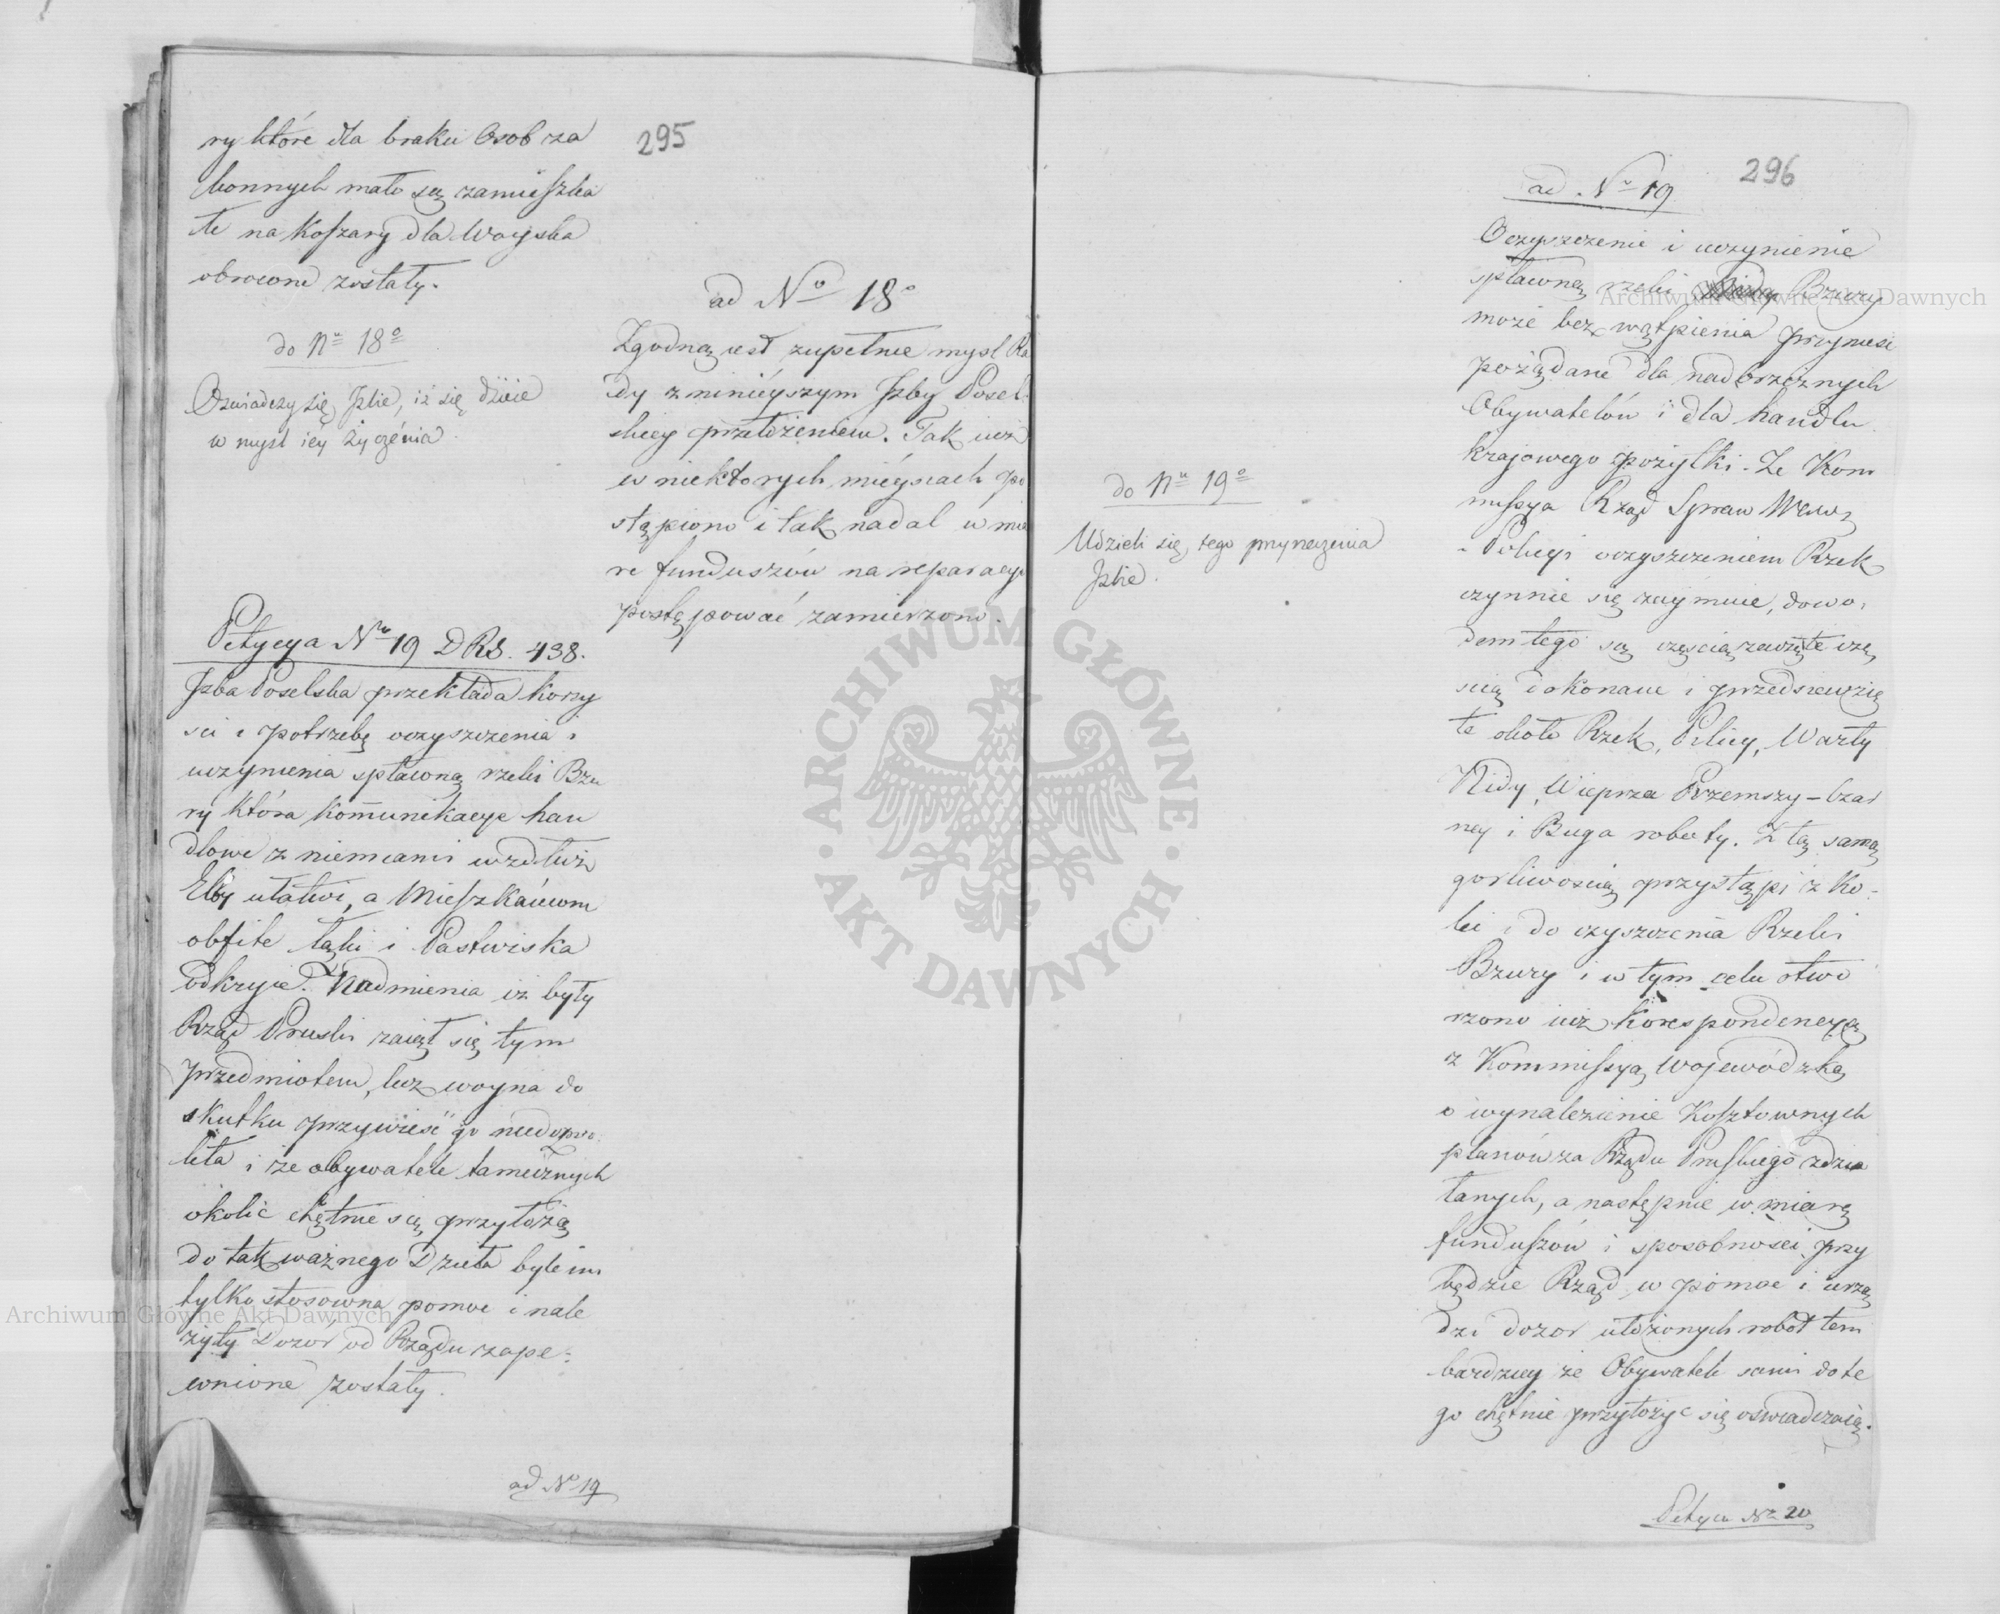 295
ry które dla braku Osob za
konnych mało są zamieszka
łe na Koszary dla Woyska
obrocone zostały.
do Nu 18o
Oświadczy się Izbie, iż się dzieie
w mysl iey życzénia.
Petycya Nro 19 DRS. 438.
Izba Poselska przekłada korzy
sci i potrzebę oczyszczenia i
uczynienia spławną rzeki Bzu
ry która kom̄unikacye han
dlowe z niemcami wzdłuż
Elby ułatwi, a Mieszkańcom
obfite łąki i Pastwiska
odkryie. Nadmienia iż były
Rząd Pruski zaiął się tym
przedmiotem, lecz woyna do
skutku przywieść go niedozwo
liła i że obywatele tameiznych
okolic chętnie się przyłożą
do tak ważnego Dzieła byle im
tylko stosowna pomoc i nale
żyty Dozor od Rządu zape-
wnione zostały.
ad No 19
ad No 18o
Zgodną iest zupełnie mysl Ra
dy z ninieyszym Izby Posel-
skiey przełożeniem. Tak iuż
w niektorych mieyscach po
stąpiono i tak nadal w mia
rę funduszów na reparacye
postępować zamierzono.
296
do Nu 19o
Udzieli się tego przyrzeczenia
Izbie.
ad Nro 19
Oczyszczenie i uczynienie
spławną rzeki Bzury
może bez wątpienia przyniesć
pożądane dla nadbrzeżnych
Obywatelów i dla handlu
krajowego pożytki. Że Kom
missya Rząd Spraw Wewn
i Policyi oczyszczeniem Rzek
czynnie się zaymuie, dowo-
dem tego są częścią zaczęte czę
scią dokonane i przedsiewzię
te około Rzek, Pilicy, Warty
Nidy, Wieprza Przemszy – Czar
ney i Buga roboty. Z tą samą
gorliwoscią przystąpi z Ko-
lei i do czyszczenia Rzeki
Bzury i w tym celu otwo
rzono iuż Korespondencyą
z Kommissyą Wojewódzką
o wynalezienie Kosztownych
planów za Rządu Pruskiego zdzia
łanych, a następnie w miarę
funduszów i sposobności przy
będzie Rząd w pomoc i urzą
dzi dozor ułożonych robot tem
bardziey że Obywatele sami do te
go chętnie przyłożyc się oswiadczaią.
Petyca Nro 20
Archiwum Główne Akt Dawnych
Archiwum Główne Akt Dawnych
ARCHIWUM GŁÓWNE · AKT DAWNYCH ·